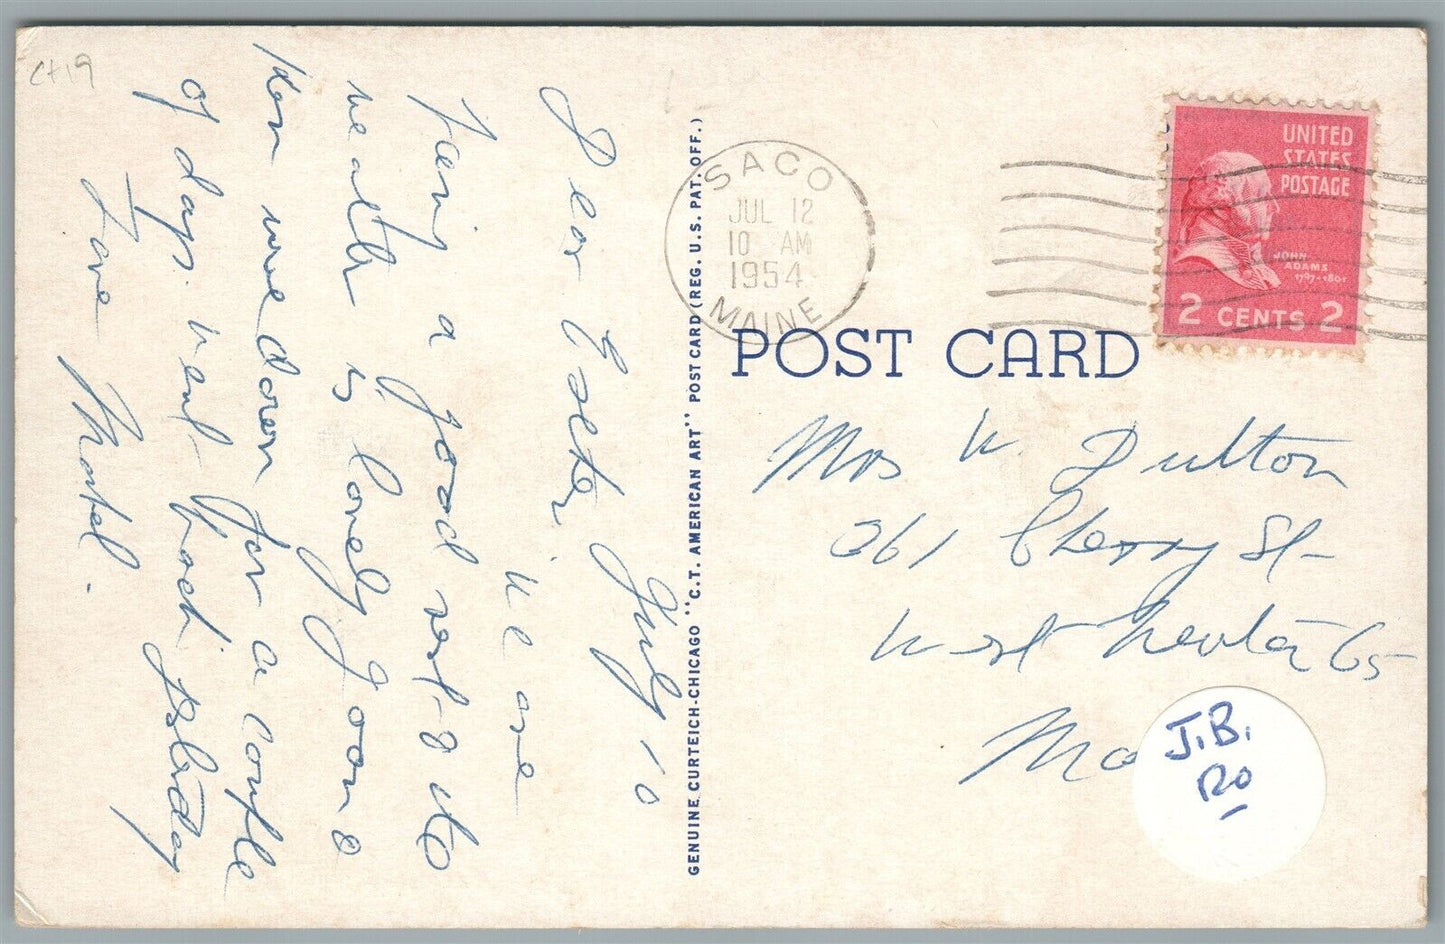 ct19
Dear Ester. July 10
We are
having a good rest & the
weather is lovely Joan &
Ken were down for a couple
of days. went back yesterday
Love Mabel.
GENUINE CURTEICH-CHICAGO "C.T. AMERICAN ART" POST CARD (REG. U.S. PAT. OFF.)
SACO
JUL 12
10 AM
1954
MAINE
UNITED
STATES
POSTAGE
JOHN
ADAMS
1797-1801
2 CENTS 2
POST CARD
Mrs W. Dutton
361 Cherry St
West Newton 65
Ma
J.B.
120